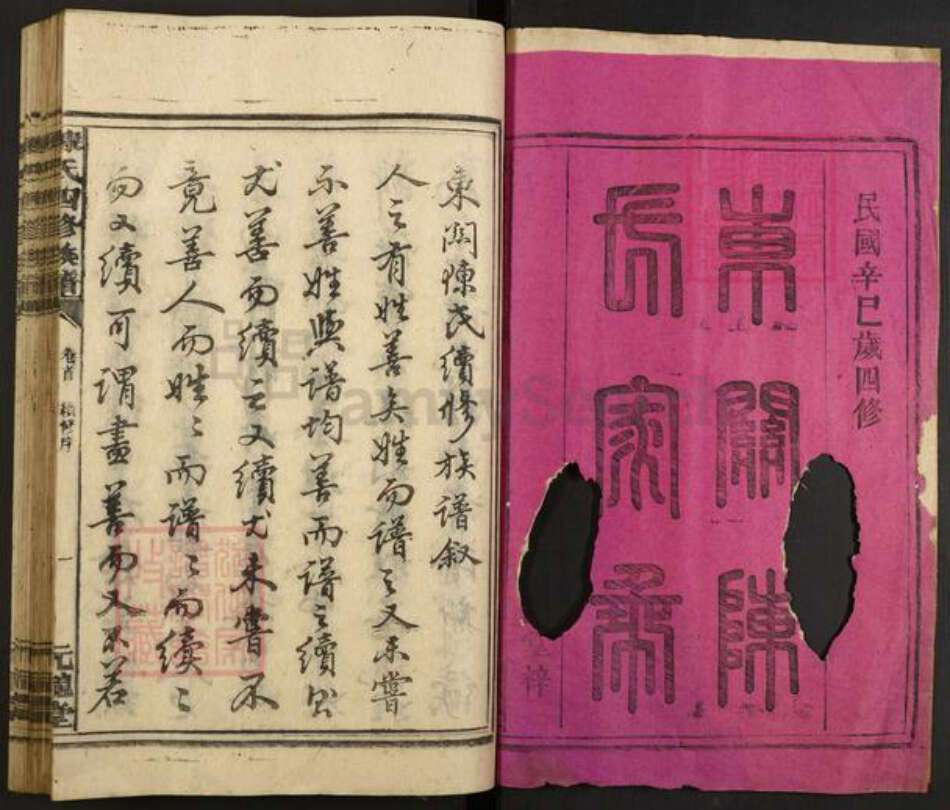 民國辛巳歲四修
東關陳
氏家乘
梓
東關陳氏續修族譜叙
人之有姓善矣姓而譜之又未嘗
不善姓與譜均善而譜之續出
尤善而續之又續尤未嘗不
竟善人而姓〻而譜〻而續〻
而又續可謂盡善而又不若
陳氏四修族譜
卷首
續修序
一
元禮堂